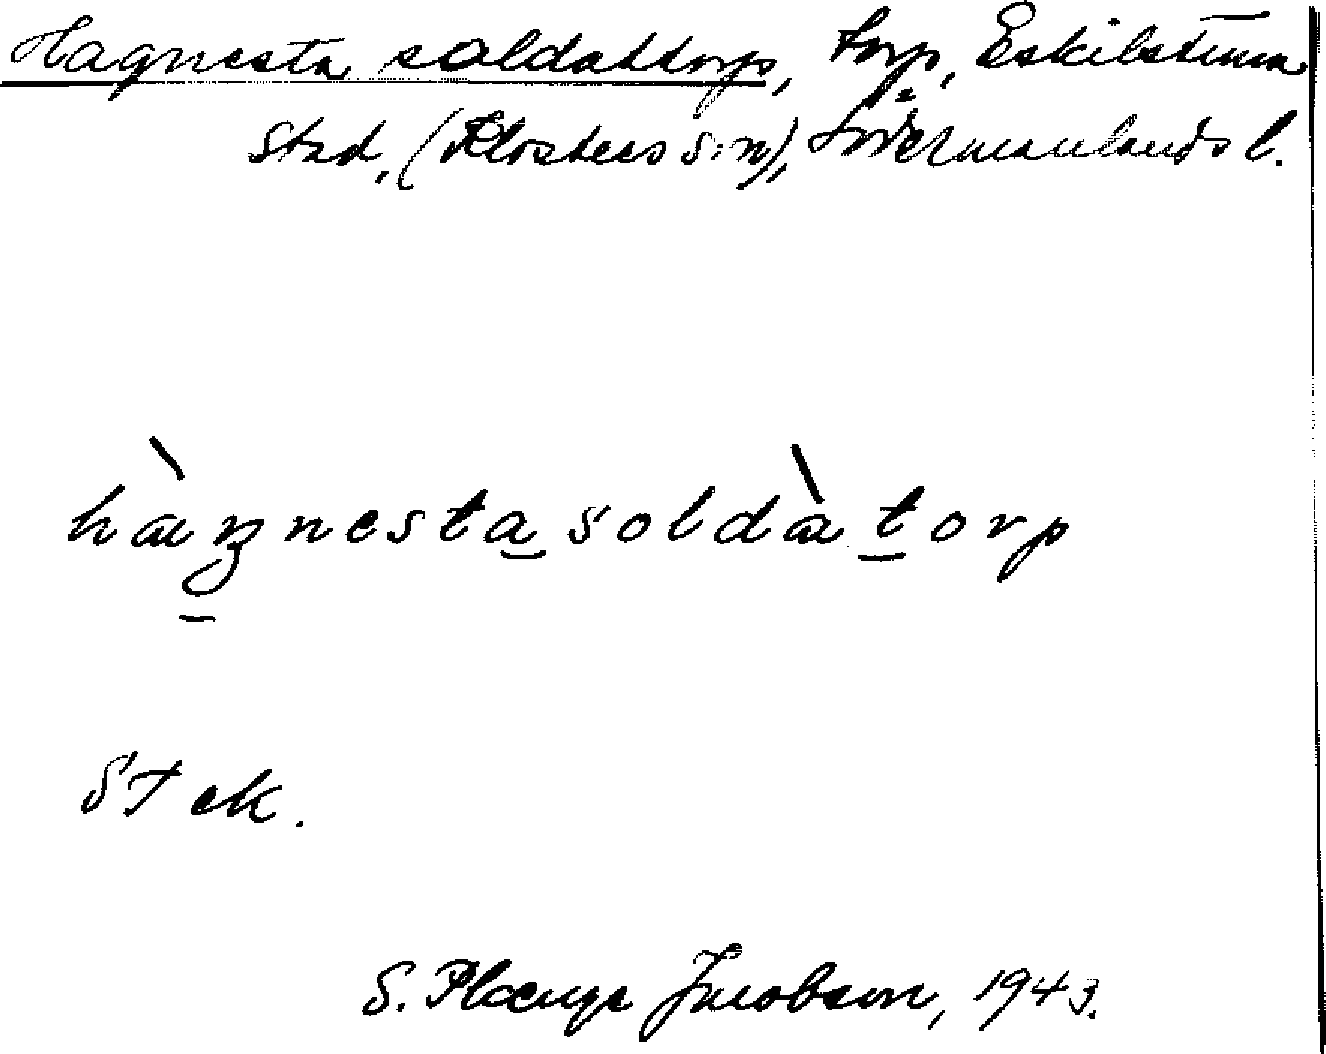 Hagnesta soldattorp, torp, Eskilstuna
stad, (Klosters s:n), Södermanlands l.
hàŋnesta soldàtorp
ST ek.
S. Jacobson, 1943.